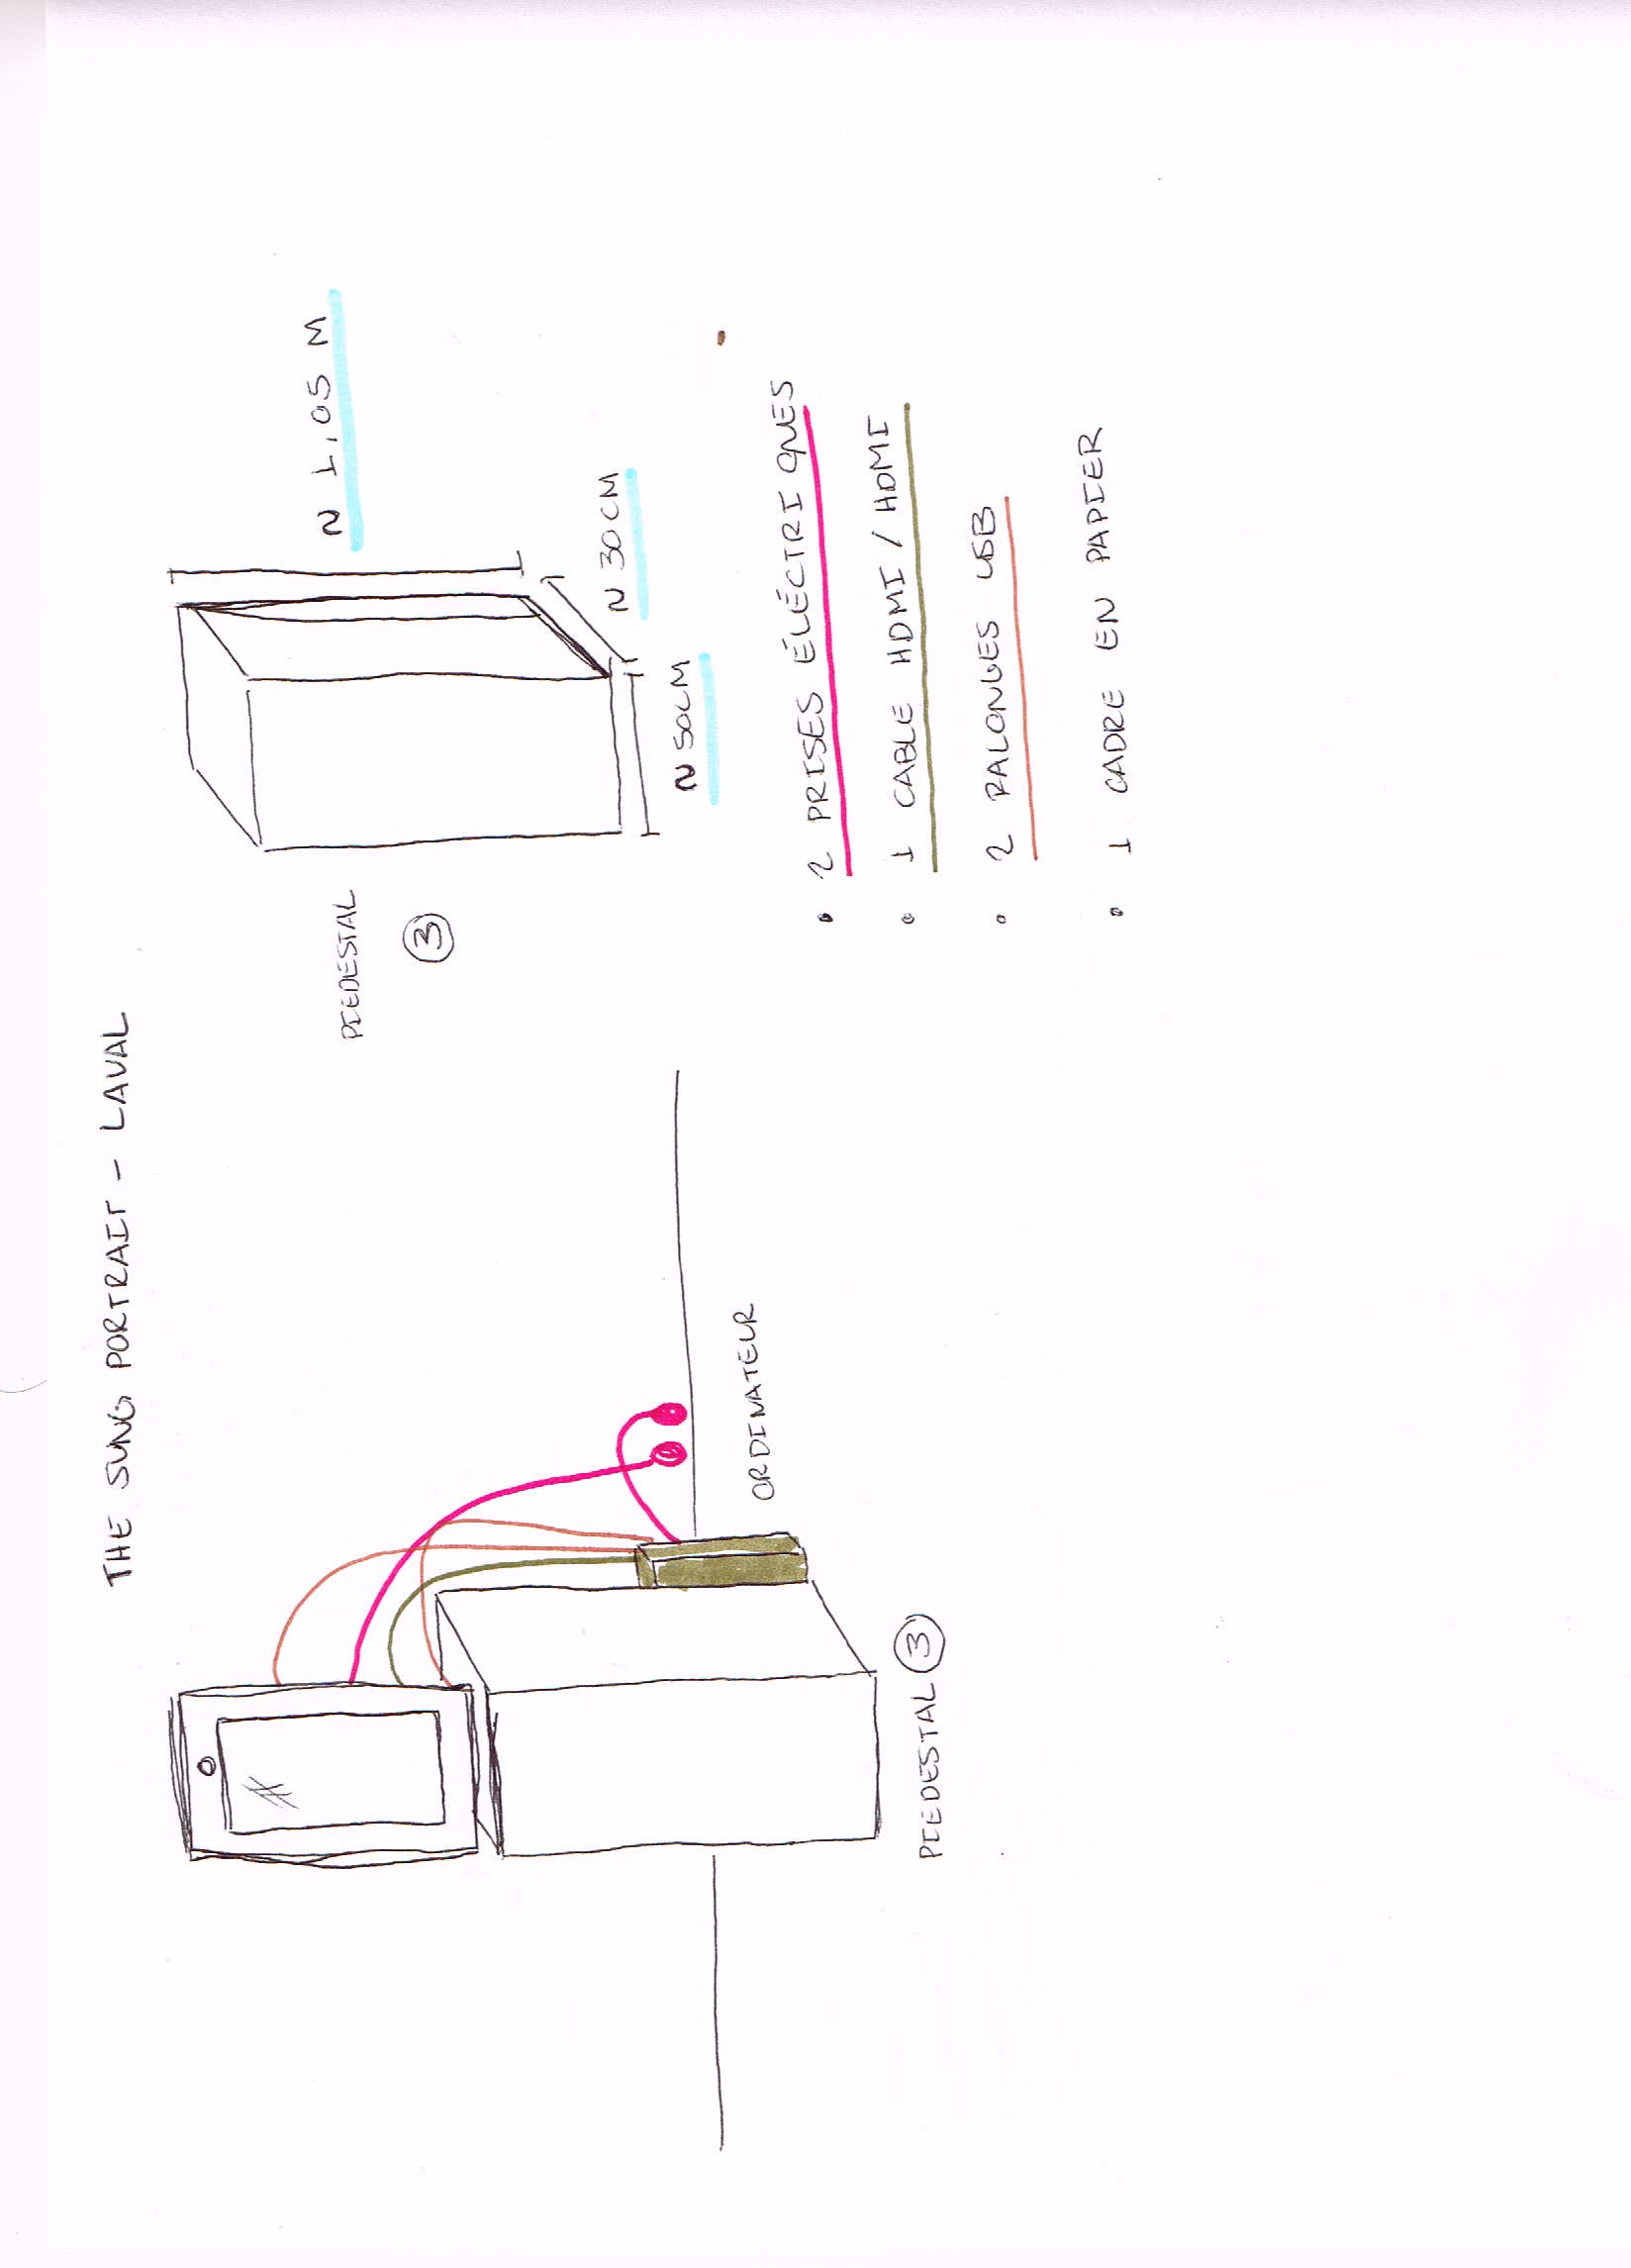 THE SUNG PORTRAIT - LAVAL
PIEDESTAL
3
~ 1,05 M
~ 30 CM
~ 50 CM
ORDINATEUR
PIEDESTAL 3
• 2 PRISES ÉLÉCTRIQUES
• 1 CABLE HDMI / HDMI
• 2 RALONGES USB
• 1 CADRE EN PAPIER